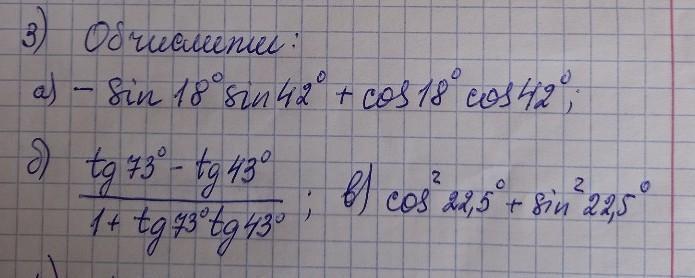 3) Обчислити:
а) - sin 18° sin 42° + cos 18° cos 42°;
б) (tg 73° - tg 43°) / (1 + tg 73° tg 43°); в) cos² 22,5° + sin² 22,5°